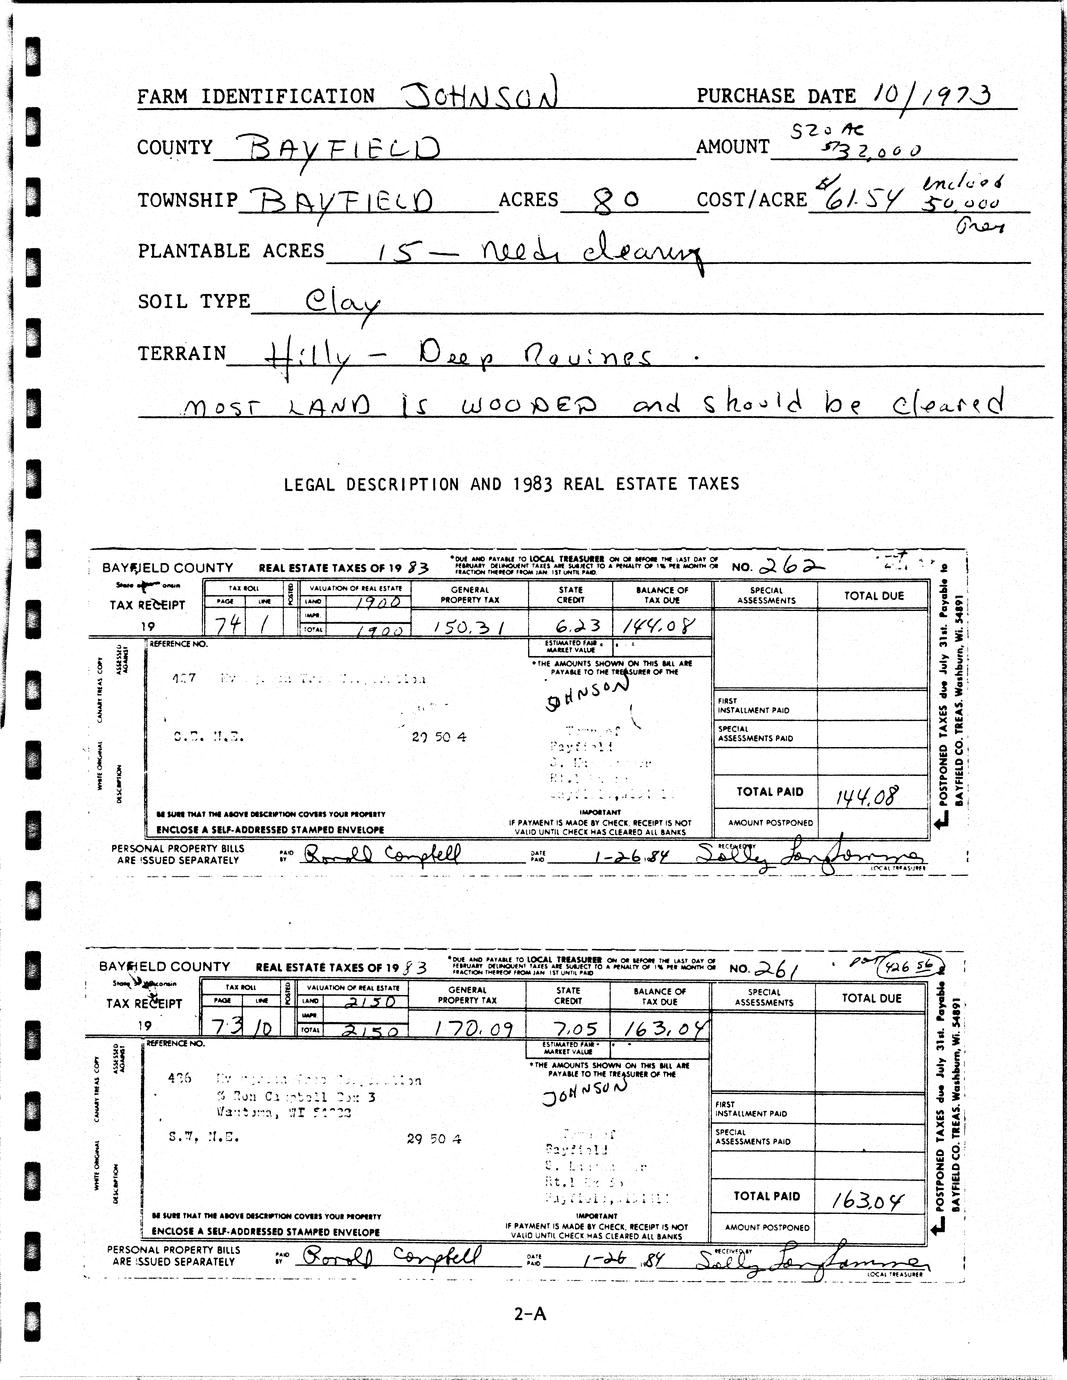 FARM IDENTIFICATION JOHNSON PURCHASE DATE 10/1973
COUNTY BAYFIELD AMOUNT 520 AC $32,000
TOWNSHIP BAYFIELD ACRES 80 COST/ACRE $61.54 includs 50,000 Trees
PLANTABLE ACRES 15 — needs clearing
SOIL TYPE Clay
TERRAIN Hilly — Deep Ravines .
MOST LAND IS WOODED and should be cleared
LEGAL DESCRIPTION AND 1983 REAL ESTATE TAXES
BAYFIELD COUNTY REAL ESTATE TAXES OF 19 83 *DUE AND PAYABLE TO LOCAL TREASURER ON OR BEFORE THE LAST DAY OF
FEBRUARY. DELINQUENT TAXES ARE SUBJECT TO A PENALTY OF 1% PER MONTH OR
FRACTION THEREOF FROM JAN. 1ST UNTIL PAID. NO. 262
TAX RECEIPT
19
TAX ROLL
PAGE LINE POSTED
74 1
VALUATION OF REAL ESTATE
LAND 1900
IMPR.
TOTAL 1900
GENERAL PROPERTY TAX
150.31
STATE CREDIT
6.23
BALANCE OF TAX DUE
144.08
SPECIAL ASSESSMENTS
TOTAL DUE
REFERENCE NO.
ESTIMATED FAIR MARKET VALUE
*THE AMOUNTS SHOWN ON THIS BILL ARE
PAYABLE TO THE TREASURER OF THE
JOHNSON
ASSESSED AGAINST
WHITE ORIGINAL CANARY TREAS COPY
DESCRIPTION
S.E. N.E. 29 50 4
Town of
Bayfield
FIRST INSTALLMENT PAID
SPECIAL ASSESSMENTS PAID
TOTAL PAID 144.08
AMOUNT POSTPONED
BE SURE THAT THE ABOVE DESCRIPTION COVERS YOUR PROPERTY
ENCLOSE A SELF-ADDRESSED STAMPED ENVELOPE
IMPORTANT
IF PAYMENT IS MADE BY CHECK, RECEIPT IS NOT
VALID UNTIL CHECK HAS CLEARED ALL BANKS
POSTPONED TAXES due July 31st. Payable to
BAYFIELD CO. TREAS. Washburn, Wi. 54891
PERSONAL PROPERTY BILLS
ARE ISSUED SEPARATELY
PAID BY Ronald Campbell DATE PAID 1-26 84 RECEIVED BY Sally
LOCAL TREASURER
BAYFIELD COUNTY REAL ESTATE TAXES OF 19 83 *DUE AND PAYABLE TO LOCAL TREASURER ON OR BEFORE THE LAST DAY OF
FEBRUARY. DELINQUENT TAXES ARE SUBJECT TO A PENALTY OF 1% PER MONTH OR
FRACTION THEREOF FROM JAN. 1ST UNTIL PAID. NO. 261 426 56
TAX RECEIPT
19
TAX ROLL
PAGE LINE POSTED
73 10
VALUATION OF REAL ESTATE
LAND 2150
IMPR.
TOTAL 2150
GENERAL PROPERTY TAX
170.09
STATE CREDIT
7.05
BALANCE OF TAX DUE
163.04
SPECIAL ASSESSMENTS
TOTAL DUE
REFERENCE NO.
ESTIMATED FAIR MARKET VALUE
*THE AMOUNTS SHOWN ON THIS BILL ARE
PAYABLE TO THE TREASURER OF THE
JOHNSON
ASSESSED AGAINST
WHITE ORIGINAL CANARY TREAS COPY
DESCRIPTION
% Ron Campbell Box 3
Wautoma, WI
S.W. N.E. 29 50 4
Town of
Bayfield
FIRST INSTALLMENT PAID
SPECIAL ASSESSMENTS PAID
TOTAL PAID 163.04
AMOUNT POSTPONED
BE SURE THAT THE ABOVE DESCRIPTION COVERS YOUR PROPERTY
ENCLOSE A SELF-ADDRESSED STAMPED ENVELOPE
IMPORTANT
IF PAYMENT IS MADE BY CHECK, RECEIPT IS NOT
VALID UNTIL CHECK HAS CLEARED ALL BANKS
POSTPONED TAXES due July 31st. Payable to
BAYFIELD CO. TREAS. Washburn, Wi. 54891
PERSONAL PROPERTY BILLS
ARE ISSUED SEPARATELY
PAID BY Ronald Campbell DATE PAID 1-26 84 RECEIVED BY Sally
LOCAL TREASURER
2-A